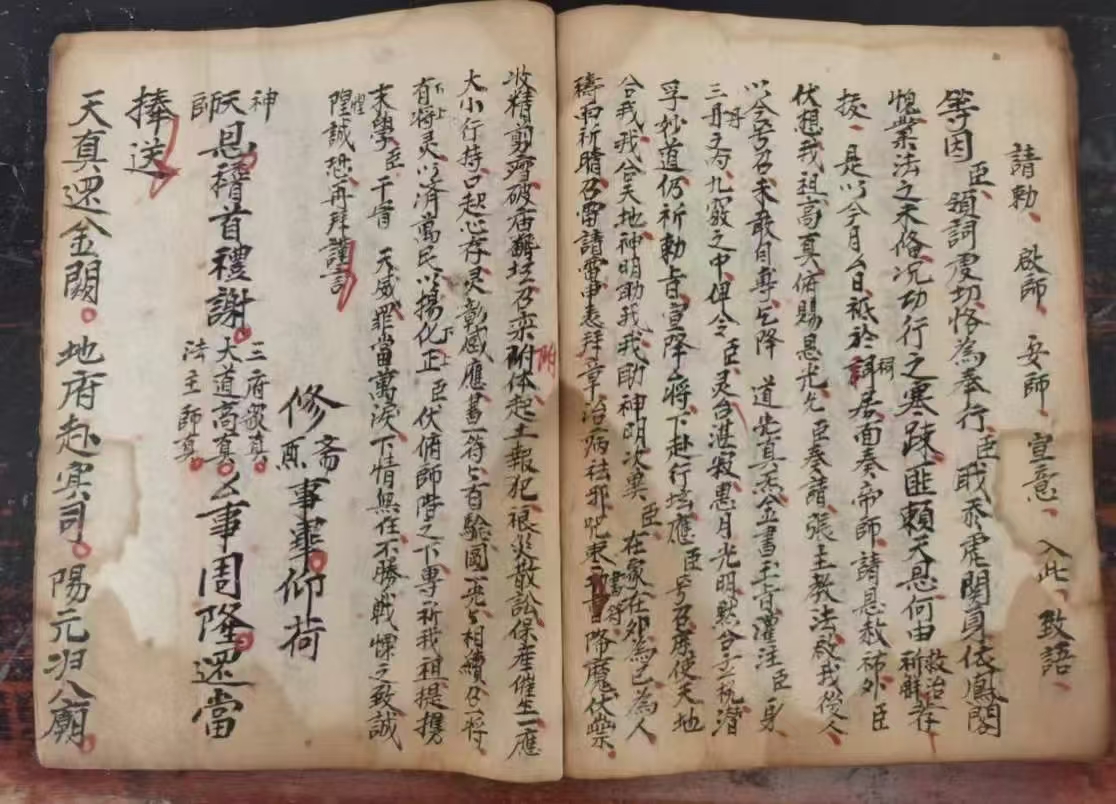 請勅、啟師、安師、宣意、入此、致語、
等因臣、領詞虔切恪為奉行、臣戢忝虎関身依鳳閣
愧業法之未俻况功行之寒踈匪頼天恩何由救治祈解在
投、是以今月今日祇於詞居面奏帝師、請恩赦祐外臣
伏想我祖高真俯賜恩光允臣奏請張主教法啟我俗人
以今号召未敢自專乞降 道炁真炁金書玉旨灌注臣身
三丹九竅之中俾令臣灵台湛寂恵月光明然
孚妙道仍祈勅旨宣降將下赴行坛應臣号召庶使天地
合我我合天地神明助我我助神明次兾臣在家在外為已為人
禱雨祈晴召雷請雷申表拜章治病祛邪咒棗書符降魔伏祟
收精剪破庙坛召附体起土報犯禳災散訟保産催生一應
大小行持口起心存灵彰感應書一符有驗相續召一將
有將灵以済萬民以揚化正臣伏俯師階之下專祈我祖提携
末學臣干冒 天威罪當萬下情無任不勝戦慄之致誠
惶誠恐再拜謹言
修斋醮事畢仰荷
神天師恩稽首禮謝三府大道高真法主師真事周隆還當
捧送
天真还金闕。地府赴冥司。陽元归八廟。